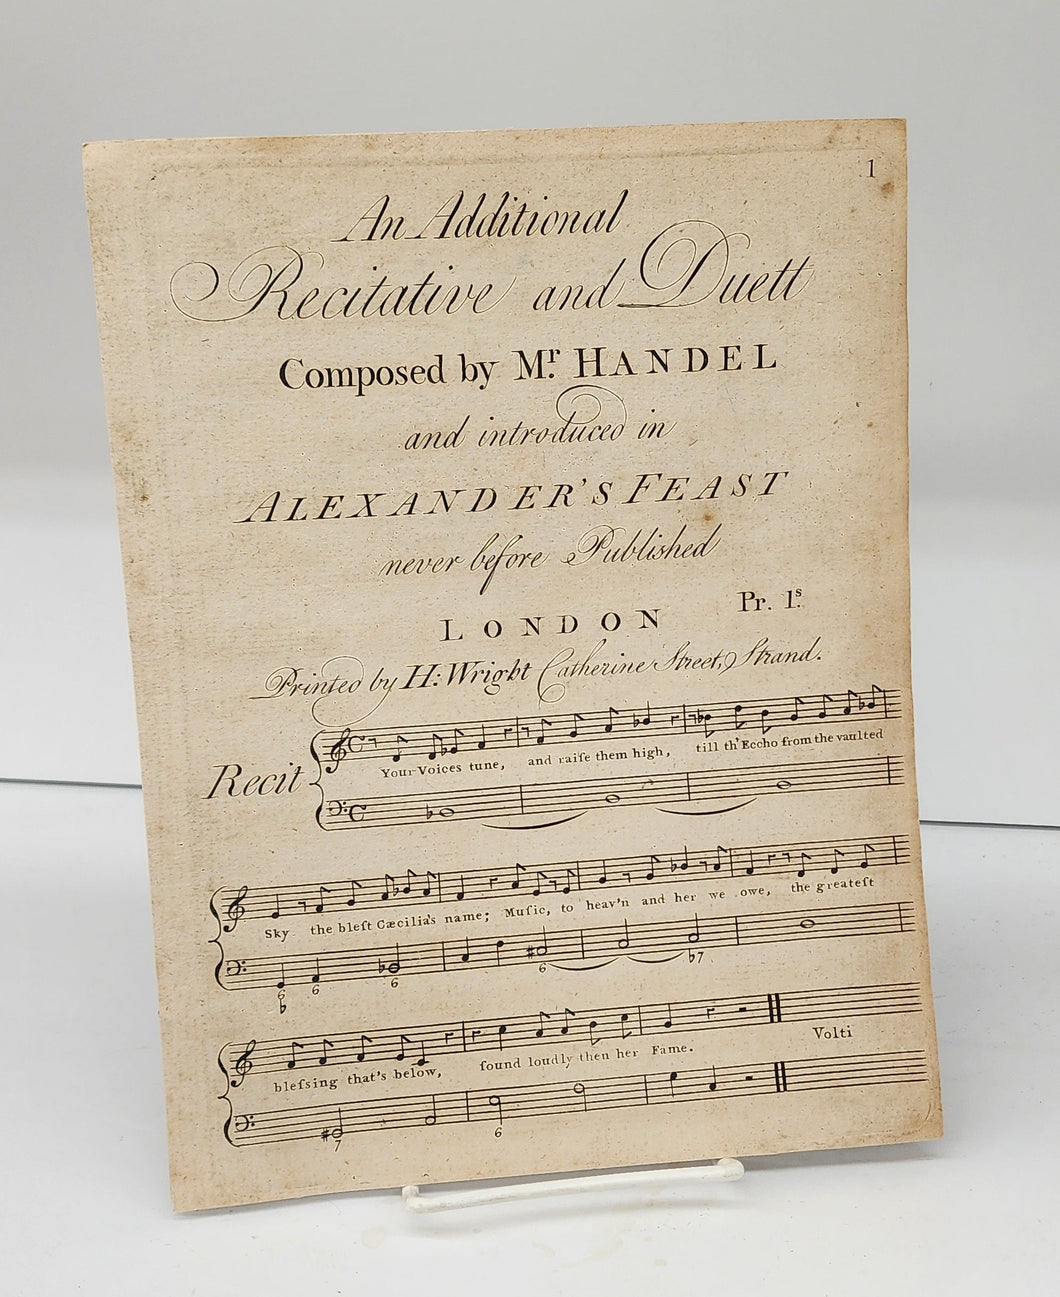 1
An Additional
Recitative and Duett
Composed by Mr. HANDEL
and introduced in
ALEXANDER'S FEAST
never before Published
Pr. 1s.
LONDON
Printed by H: Wright Catherine Street, Strand.
Recit
Your Voices tune, and raiſe them high, till th' Eccho from the vaulted
Sky the bleſt Cæcilia's name; Muſic, to heav'n and her we owe, the greateſt
6 6 6 6 ♭7
♭
bleſsing that's below, found loudly then her Fame. Volti
7 6